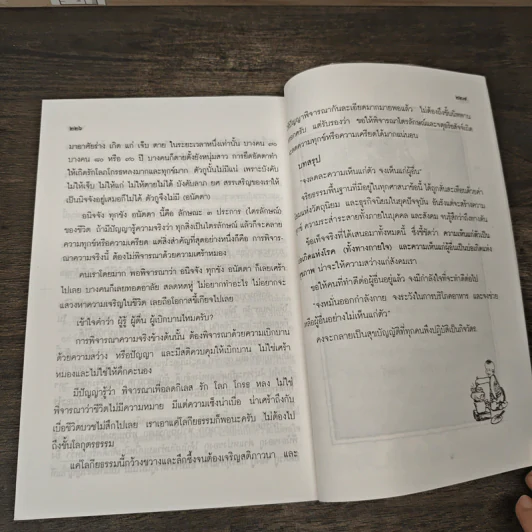 ๒๒๖
มาอาศัยร่าง เกิด แก่ เจ็บ ตาย ในระยะเวลาหนึ่งเท่านั้น บางคน ๓๐
บางคน ๘๐ หรือ ๙๐ ปี บางคนก็ตายตั้งยังหนุ่มสาว การยึดอัตตาทำ
ให้เกิดรักโลภโกรธหลงมากและทุกข์มาก ตัวกูนั้นไม่มีแน่ เพราะบังคับ
ไม่ให้เจ็บ ไม่ให้แก่ ไม่ให้ตายไม่ได้ บังคับลาภ ยศ สรรเสริญของเราให้
เป็นนิจจังอยู่เสมอก็ไม่ได้ ตัวกูจึงไม่มี (อนัตตา)
อนิจจัง ทุกขัง อนัตตา นี้คือ ลักษณะ ๓ ประการ (ไตรลักษณ์)
ของชีวิต ถ้ามีปัญญารู้ความจริงว่า ทุกสิ่งเป็นไตรลักษณ์ แล้วก็จะคลาย
ความทุกข์หรือความเครียด แต่สิ่งสำคัญที่สุดอย่างหนึ่งก็คือ การพิจาร-
ณาความจริงนี้ ต้องไม่พิจารณาด้วยความเศร้าหมอง
คนเราโดยมาก พอพิจารณาว่า อนิจจัง ทุกขัง อนัตตา ก็เลยเศร้า
ไปเลย บางคนก็เลยทอดอาลัย สลดหดหู่ ไม่อยากทำอะไร ไม่อยากจะ
แสวงหาความเจริญในชีวิต เลยถือโอกาสขี้เกียจไปเลย
เข้าใจคำว่า ผู้รู้ ผู้ตื่น ผู้เบิกบานไหมครับ?
การพิจารณาความจริงข้างต้นนั้น ต้องพิจารณาด้วยความเบิกบาน
ด้วยความสว่าง หรือปัญญา และมีสติควบคุมให้เบิกบาน ไม่ใช่เศร้า
หมองและไม่ใช่ให้คึกคะนอง
มีปัญญารู้ว่า พิจารณาเพื่อลดกิเลส รัก โลภ โกรธ หลง ไม่ใช่
พิจารณาว่าชีวิตไม่มีความหมาย มีแต่ความเซ็งน่าเบื่อ น่าเศร้าถึงกับ
เบื่อชีวิตบวชไม่สึกไปเลย เราเอาแค่โลกียธรรมก็พอนะครับ ไม่ต้องไป
ถึงขั้นโลกุตรธรรม
แค่โลกียธรรมนี้กว้างขวางและลึกซึ้งจนต้องเจริญสติภาวนา และ
๒๒๗
ปัญญาพิจารณากันละเอียดมากมายพอแล้ว ไม่ต้องถึงขั้นนิพพาน
แต่รับรองว่า ขอให้พิจารณาไตรลักษณ์และ
ลดความทุกข์หรือความเครียดได้มากแน่นอน
บทสรุป
"จงลดละความเห็นแก่ตัว จงเห็นแก่ผู้อื่น"
จริยธรรมพื้นฐานที่มีอยู่ในทุกศาสนาข้อนี้ ได้ถูกลืมละเลือนด้วยค่า
แห่งวัตถุนิยม และธุรกิจนิยมในยุคปัจจุบัน
ความระส่ำระสายทั้งภายในบุคคล และสังคม จนรู้สึกว่าโลก
ข้อเท็จจริงที่ได้เสนอมาทั้งหมดนี้ ซึ่งชี้ชัดว่า ความเห็นแก่ตัวเป็น
เกิดแห่งโรค (ทั้งทางกายใจ) และความเห็นแก่ผู้อื่นเป็นบ่อเกิดแห่ง
สุขภาพ น่าจะให้ความสว่างแก่สังคมเรา
ขอให้คนที่ทำดีต่อผู้อื่นอยู่แล้ว จงมีกำลังใจที่จะทำดีต่อไป
"จงหมั่นออกกำลังกาย จงระวังในการบริโภคอาหาร และจงช่วย
เหลือผู้อื่นอย่างไม่เห็นแก่ตัว"
คงจะกลายเป็นสุขบัญญัติที่ทุกคนพึงปฏิบัติเป็นกิจวัตร